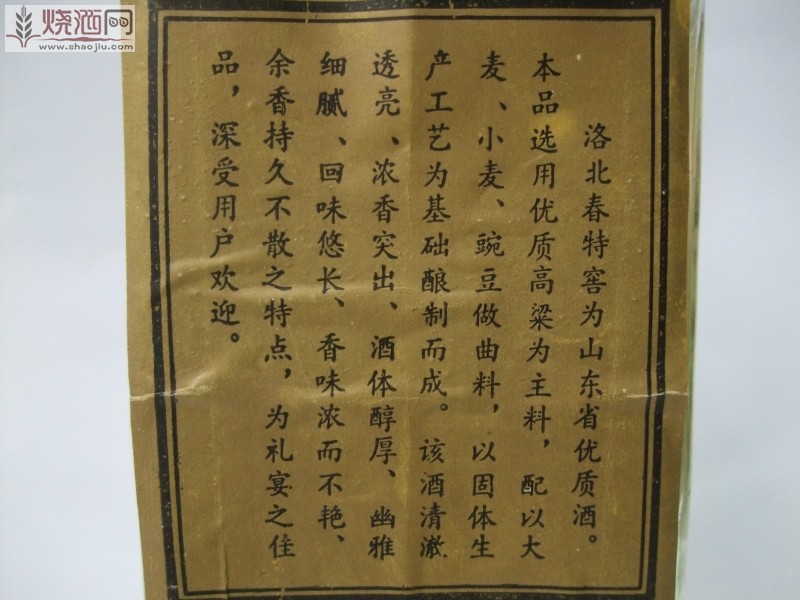 烧酒网
www.shaojiu.com
洛北春特窖为山东省优质酒。
本品选用优质高粱为主料，配以大
麦、小麦、豌豆做曲料，以固体生
产工艺为基础酿制而成。该酒清澈
透亮、浓香突出、酒体醇厚、幽雅
细腻、回味悠长、香味浓而不艳、
余香持久不散之特点，为礼宴之佳
品，深受用户欢迎。